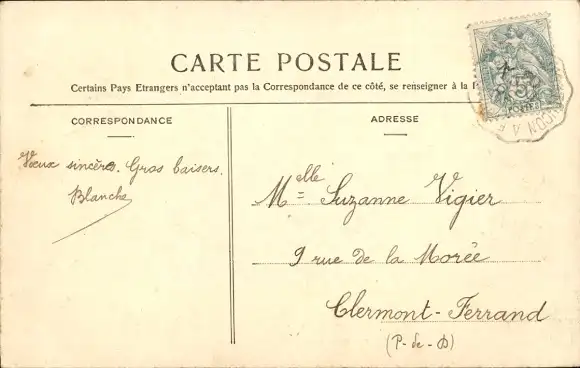 CARTE POSTALE
Certains Pays Etrangers n'acceptant pas la Correspondance de ce côté, se renseigner à la
CORRESPONDANCE
ADRESSE
Vœux sincères. Gros baisers.
Blanche
Melle Suzanne Vigier
9 rue de la Morée
Clermont-Ferrand
(P-de-D)
5
POSTES